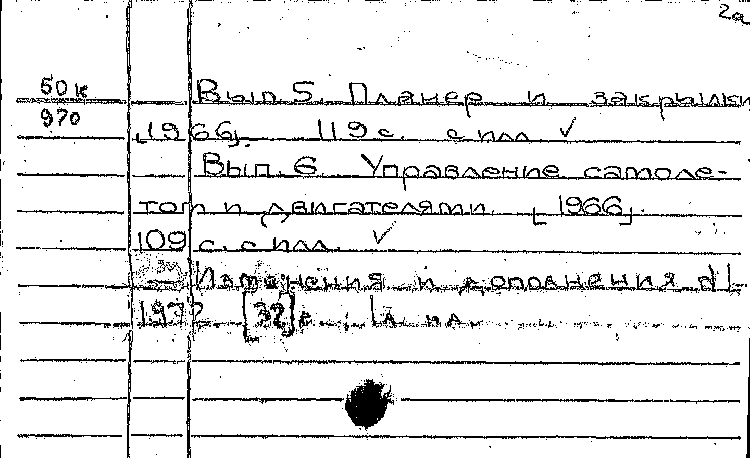 2а
50 к
970
Вып. 5. Планер и закрылки
[1966]. 119 с. с илл. ✓
Вып. 6. Управление самоле-
том и двигателями. [1966].
109 с. с илл. ✓
Изменения и дополнения
[32] с.